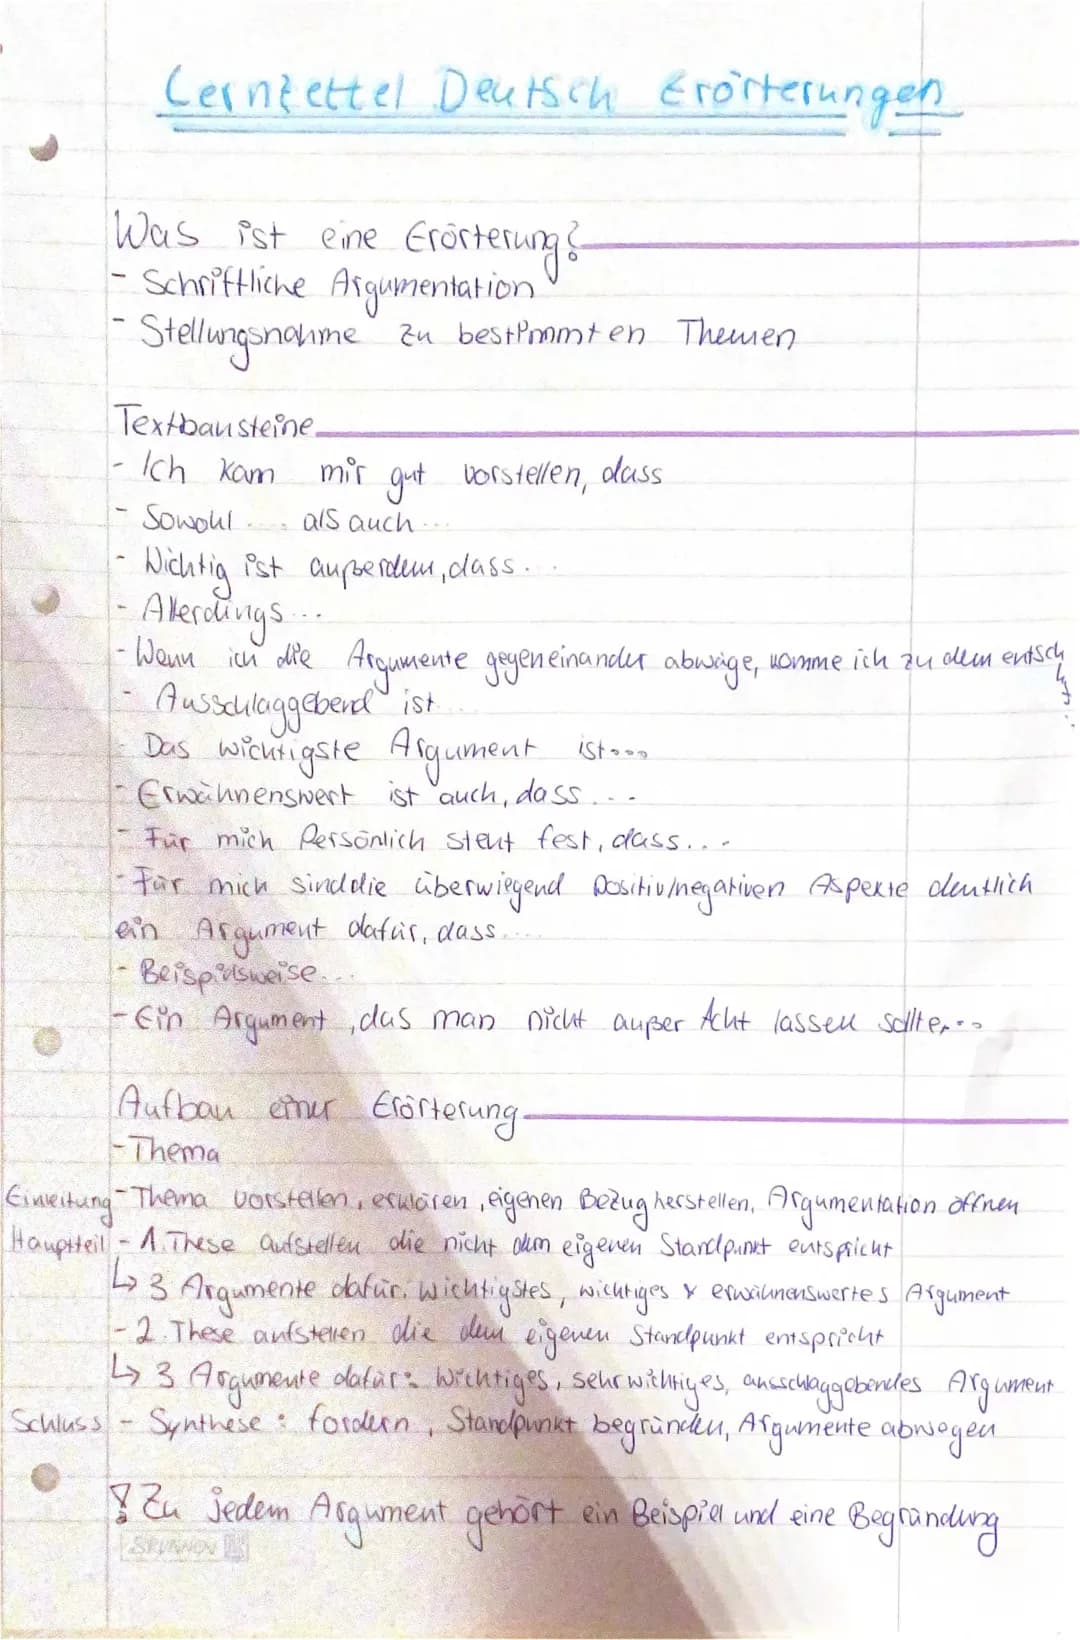 Lernzettel Deutsch Erörterungen
Was ist eine Erörterung?
- Schriftliche Argumentation
- Stellungsnahme zu bestimmten Themen
Textbausteine
- Ich kann mir gut vorstellen, dass
- Sowohl .... als auch ...
- Wichtig ist außerdem, dass...
- Allerdings ...
- Wenn ich die Argumente gegeneinander abwäge, komme ich zu dem entsch
- Ausschlaggebend ist ...
- Das wichtigste Argument ist....
- Erwähnenswert ist auch, dass ...
- Für mich Persönlich steht fest, dass...
- Für mich sind die überwiegend positiv/negativen Aspekte deutlich
ein Argument dafür, dass ....
- Beispielsweise...
- Ein Argument, das man nicht außer Acht lassen sollte,...
Aufbau einer Erörterung
- Thema
Einleitung - Thema vorstellen, erklären, eigenen Bezug herstellen, Argumentation öffnen
Hauptteil - 1. These aufstellen die nicht dem eigenen Standpunkt entspricht
↳ 3 Argumente dafür: Wichtigstes, wichtiges & erwähnenswertes Argument
- 2. These aufstellen die dem eigenen Standpunkt entspricht
↳ 3 Argumente dafür: Wichtiges, sehr wichtiges, ausschlaggebendes Argument
Schluss - Synthese: fordern, Standpunkt begründen, Argumente abwegen
! Zu jedem Argument gehört ein Beispiel und eine Begründung
BRUNNEN